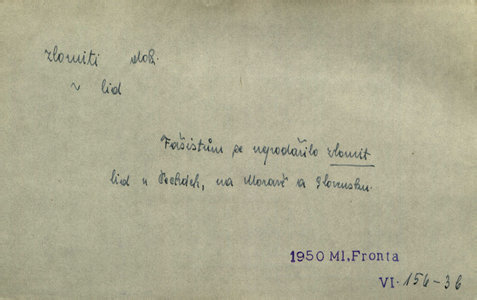 zlomiti dok.
~ lid
Fašistům se nepodařilo zlomit
lid v Čechách, na Moravě a Slovensku.
1950 Ml.Fronta
VI-156-36